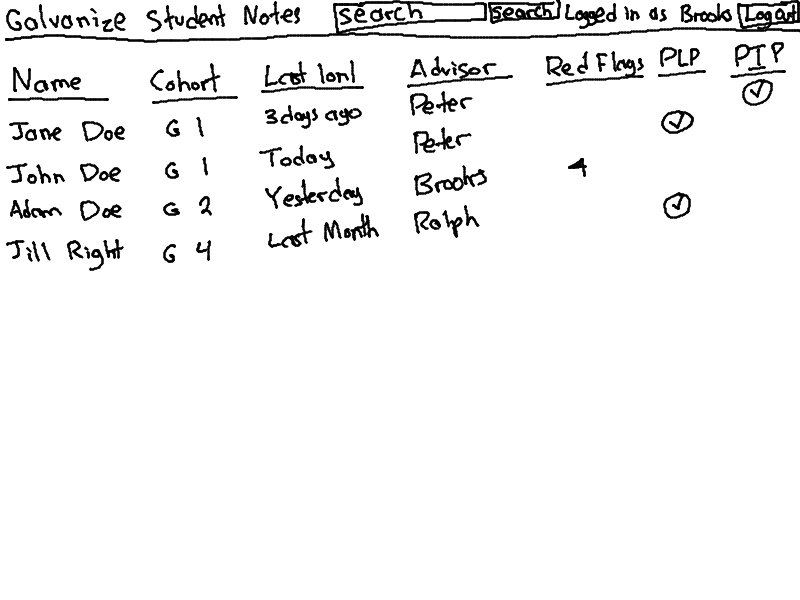 Galvanize Student Notes search search Logged in as Brooks Log out
Name Cohort Last 1on1 Advisor Red Flags PLP PIP
Jane Doe G 1 3 days ago Peter ✓
John Doe G 1 Today Peter ✓
Adam Doe G 2 Yesterday Brooks 4
Jill Right G 4 Last Month Ralph ✓